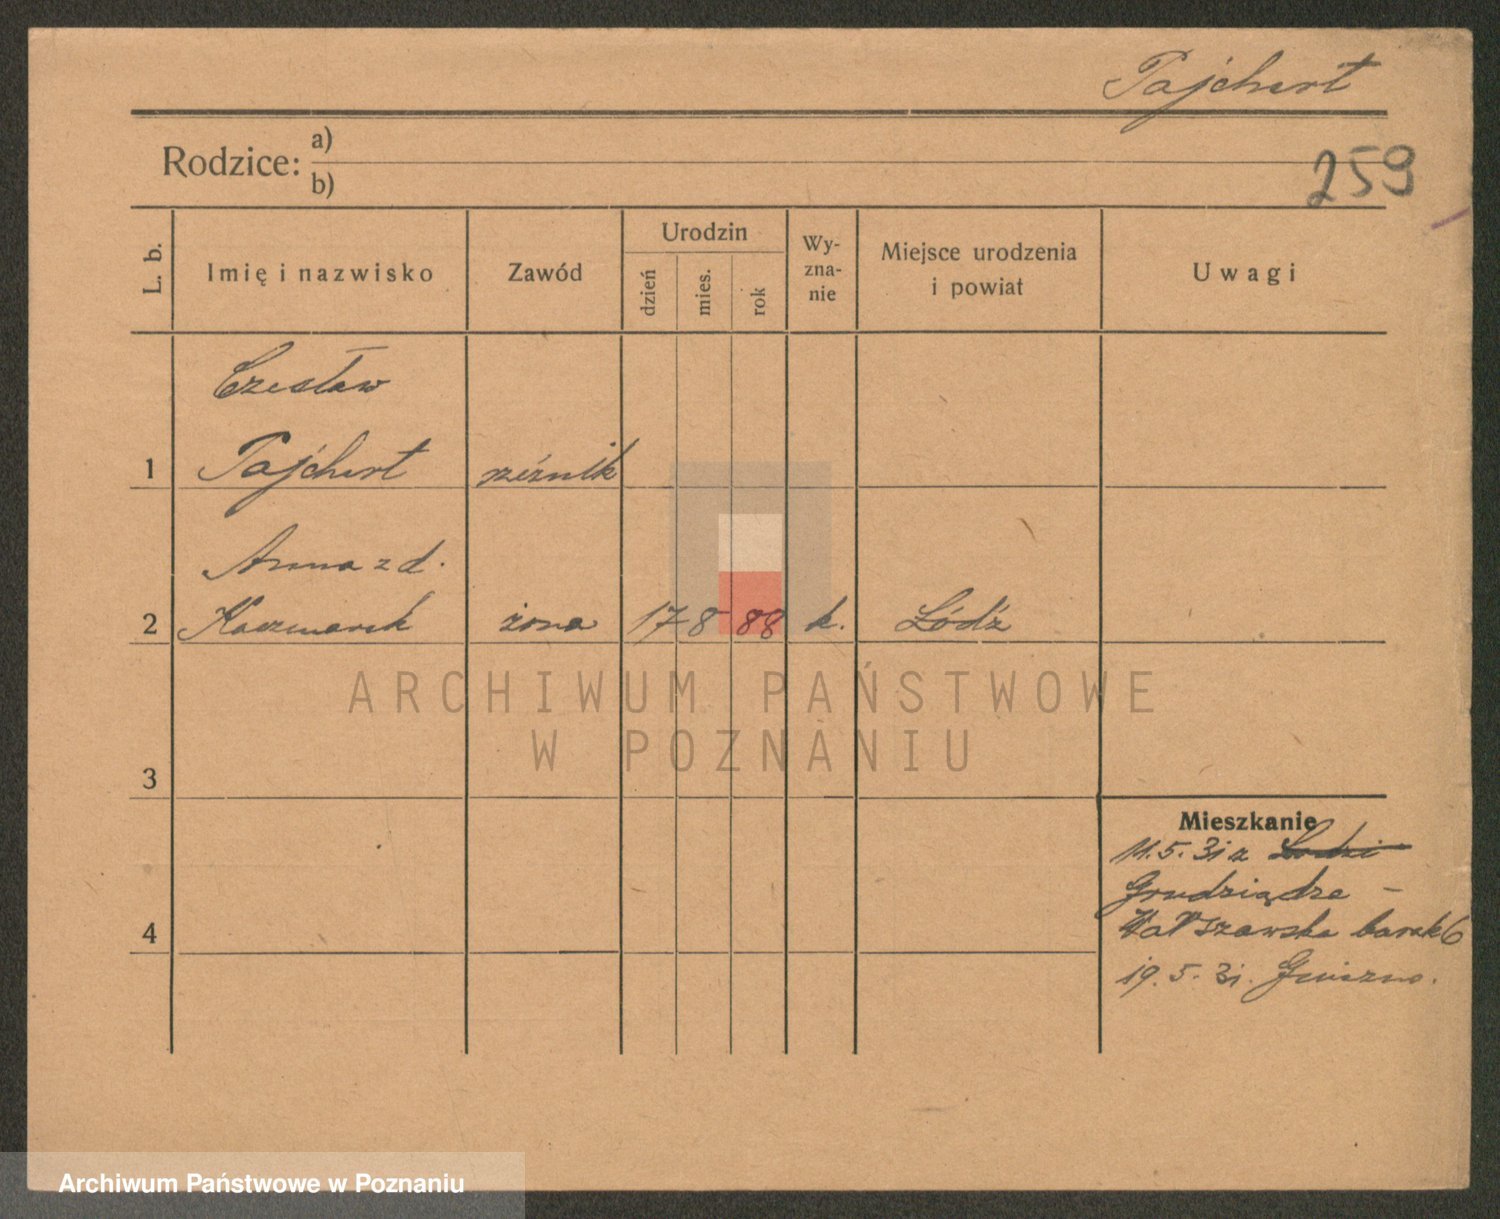 Pajchert
Rodzice: a)
b)
259
L. b.
Imię i nazwisko
Zawód
Urodzin
dzień
mies.
rok
Wy-
zna-
nie
Miejsce urodzenia
i powiat
Uwagi
Czesław
1 Pajchert rzeźnik
Anna z d.
2 Kaczmarek żona 17 8 88 k. Łódź
3
4
Mieszkanie
11.5.31 z Łodzi
Grudziądza –
Warszawska barak 6
19.5.31. Gniezno.
ARCHIWUM PAŃSTWOWE
W POZNANIU
Archiwum Państwowe w Poznaniu